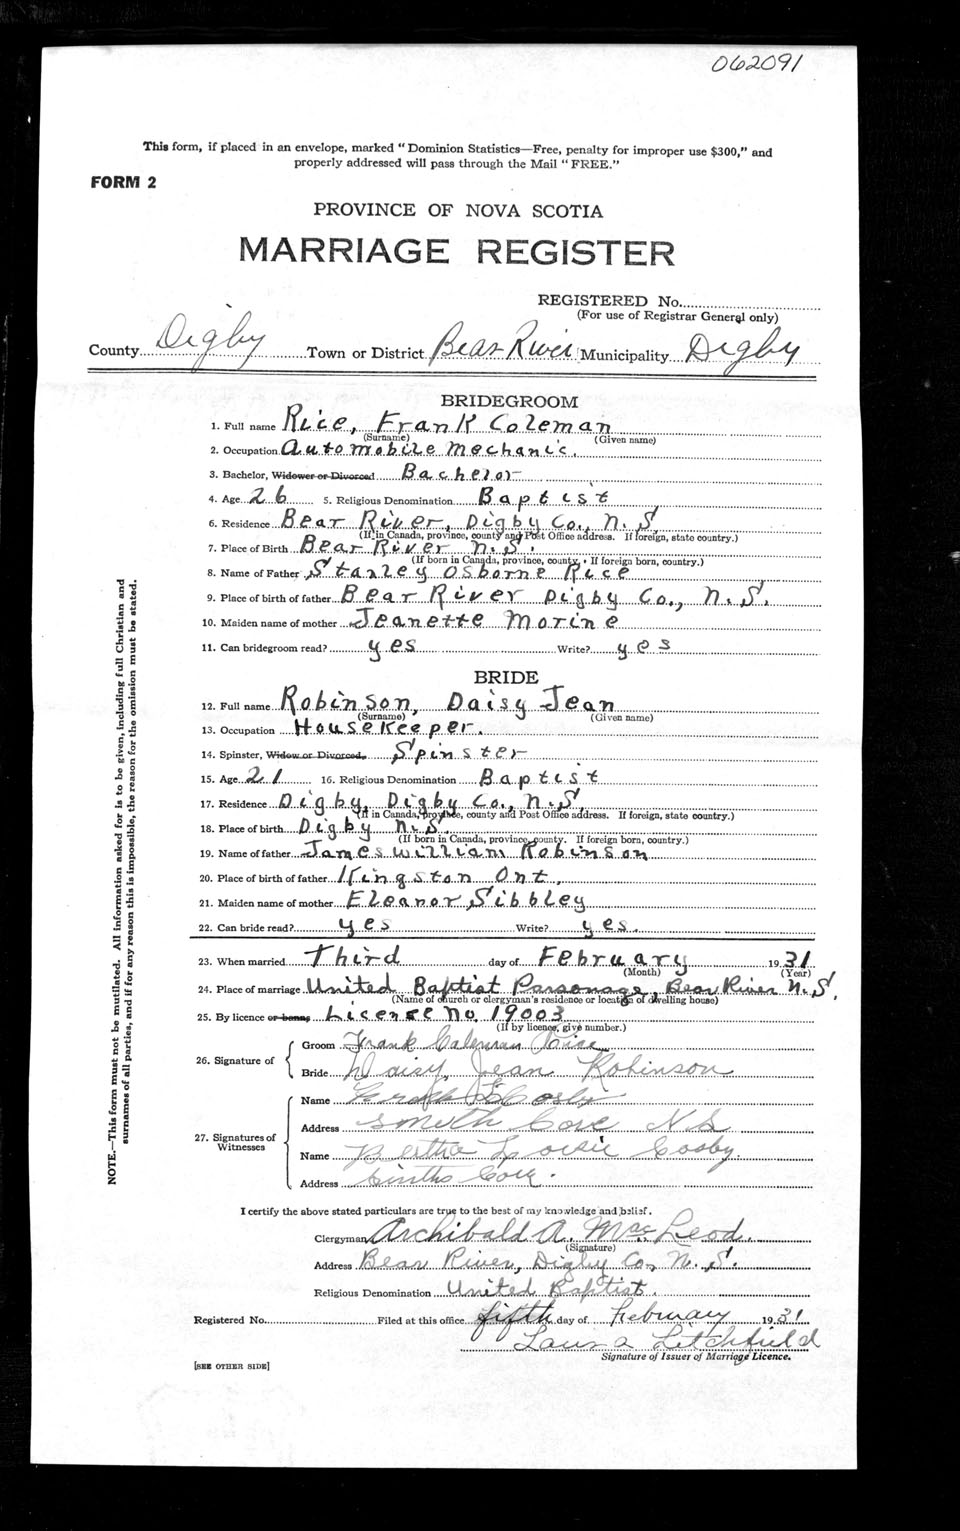 062091
This form, if placed in an envelope, marked "Dominion Statistics—Free, penalty for improper use $300," and
properly addressed will pass through the Mail "FREE."
FORM 2
PROVINCE OF NOVA SCOTIA
MARRIAGE REGISTER
REGISTERED No.
(For use of Registrar General only)
County Digby Town or District Bear River Municipality Digby
BRIDEGROOM
1. Full name Rice, Frank Coleman
(Surname) (Given name)
2. Occupation Automobile Mechanic.
3. Bachelor, Widower or Divorced Bachelor
4. Age 26 5. Religious Denomination Baptist
6. Residence Bear River, Digby Co., N.S.
(If in Canada, province, county and Post Office address. If foreign, state country.)
7. Place of Birth Bear River N.S.
(If born in Canada, province, county. If foreign born, country.)
8. Name of Father Stanley Osborne Rice
9. Place of birth of father Bear River Digby Co., N.S.
10. Maiden name of mother Jeanette Morine
11. Can bridegroom read? yes Write? yes
BRIDE
12. Full name Robinson, Daisy Jean
(Surname) (Given name)
13. Occupation Housekeeper.
14. Spinster, Widow or Divorced, Spinster
15. Age 21 16. Religious Denomination Baptist
17. Residence Digby, Digby Co., N.S.
(If in Canada, province, county and Post Office address. If foreign, state country.)
18. Place of birth Digby N.S.
(If born in Canada, province, county. If foreign born, country.)
19. Name of father James William Robinson
20. Place of birth of father Kingston Ont.
21. Maiden name of mother Eleanor Sibbley
22. Can bride read? yes Write? yes.
23. When married Third day of February 1931
(Month) (Year)
24. Place of marriage United Baptist Parsonage, Bear River N.S.
(Name of church or clergyman's residence or location of dwelling house)
25. By licence or banns License No. 19003
(If by licence, give number.)
26. Signature of
Groom Frank Coleman Rice
Bride Daisy Jean Robinson
27. Signatures of
Witnesses
Name Cosby
Address Smith Cove N.S
Name Bertha Louise Cosby
Address Smiths Cove.
I certify the above stated particulars are true to the best of my knowledge and belief.
Clergyman Archibald A. MacLeod.
(Signature)
Address Bear River, Digby Co., N.S.
Religious Denomination United Baptist.
Registered No. Filed at this office fifth day of February 1931
Laura Litchfield
Signature of Issuer of Marriage Licence.
[SEE OTHER SIDE]
NOTE.—This form must not be mutilated. All information asked for is to be given, including full Christian and
surnames of all parties, and if for any reason this is impossible, the reason for the omission must be stated.